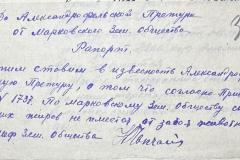 Во Александрфельской Претуры
от Марковского Зем. общества
Рапорт.
ставим в известность Алексадро
Претуру, о том что согласно При
№ 1737. По Марковскому Зем. Обществу
жиров не имется от забоя
Зем. Общества